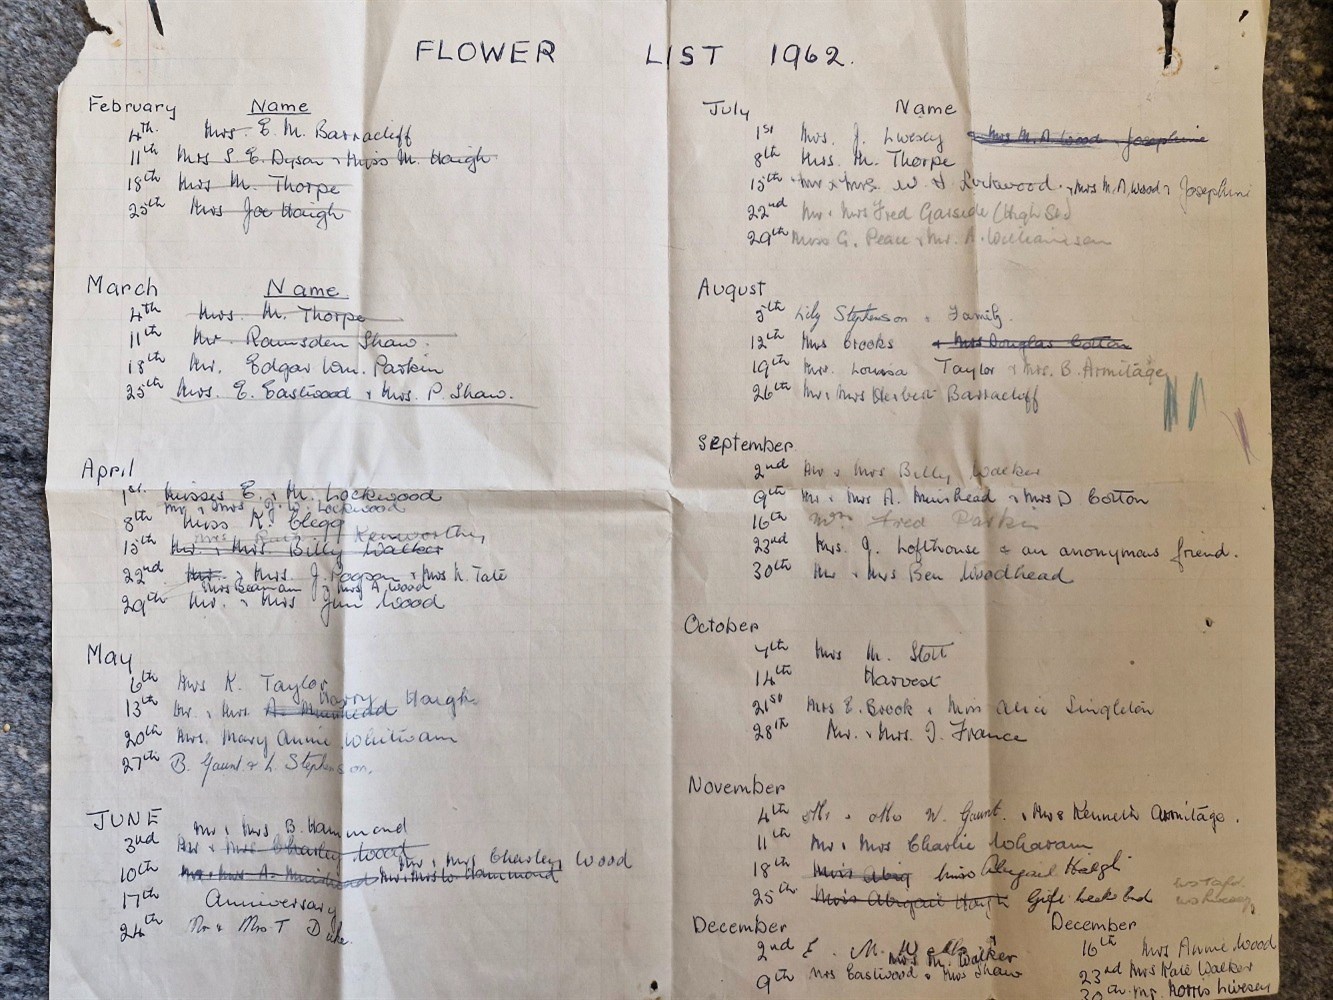 FLOWER LIST 1962.
February Name
4th. Mrs. E. M. Barraclough
11th Mrs S. E. Dyson & Miss M. Haigh
18th Mrs M. Thorpe
25th Mrs Joe Haigh
March Name
4th Mrs. M. Thorpe
11th Mr. Ramsden Shaw.
18th Mr. Edgar Wm. Parkin
25th Mrs. E. Eastwood & Mrs. P. Shaw.
April
1st. Misses E. & M. Lockwood
Mr & Mrs J. W. Lockwood
8th Miss K. Clegg
Kenworthy
15th Mr. & Mrs. Billy Walker
22nd Mr. & Mrs. J. Pogson & Mrs N. Tate
Mrs Beaman & Mrs A. Wood
29th Mr. & Mrs Jim Wood
May
6th Mrs K. Taylor
13th Mr. & Mrs A. Muirhead Harry Haigh
20th Mrs. Mary Annie Whitwam
27th B. Gaunt & L. Stephenson.
JUNE
Mr & Mrs B. Hammond
3rd Mr & Mrs Charley Wood
Mr & Mrs Charley Wood
10th Mr & Mrs A. Muirhead Mr & Mrs W Hammond
17th Anniversary
24th Mr & Mrs T Duke.
July Name
1st Mrs. J. Livesey & Mrs M. A. Wood & Josephine
8th Mrs. M. Thorpe
15th Mr & Mrs. W. H. Lockwood. & Mrs M. A. Wood & Josephine
22nd Mr & Mrs Fred Garside (High St)
29th Mrs G. Peace & Mr. A. Williamson
August
5th Lily Stephenson & Family.
12th Mrs Crooks & Mrs Douglas Cotton
19th Mrs. Louisa Taylor & Mrs. B. Armitage
26th Mr & Mrs Herbert Barraclough
September.
2nd Mr & Mrs Billy Walker
9th Mr & Mrs A. Muirhead & Mrs D Cotton
16th Mrs Fred Parkin
23rd Mrs. J. Lofthouse & an anonymous friend.
30th Mr & Mrs Ben Woodhead
October
7th Mrs M. Stott
14th Harvest
21st Mrs E. Brook & Mrs Alice Singleton
28th Mr. & Mrs. J. France
November
4th Mr. & Mrs W. Gaunt. & Mrs Kenneth Armitage.
11th Mr & Mrs Charlie Wharam
18th Miss Abig Miss Abigail Haigh
25th Miss Abigail Haigh Gift Week End
December
2nd E. M.
Mrs M. Walker
9th Mrs Eastwood & Mrs Shaw
December
16th Mrs Annie Wood
23rd Mrs Kate Walker
30th Mr. Morris Livesey